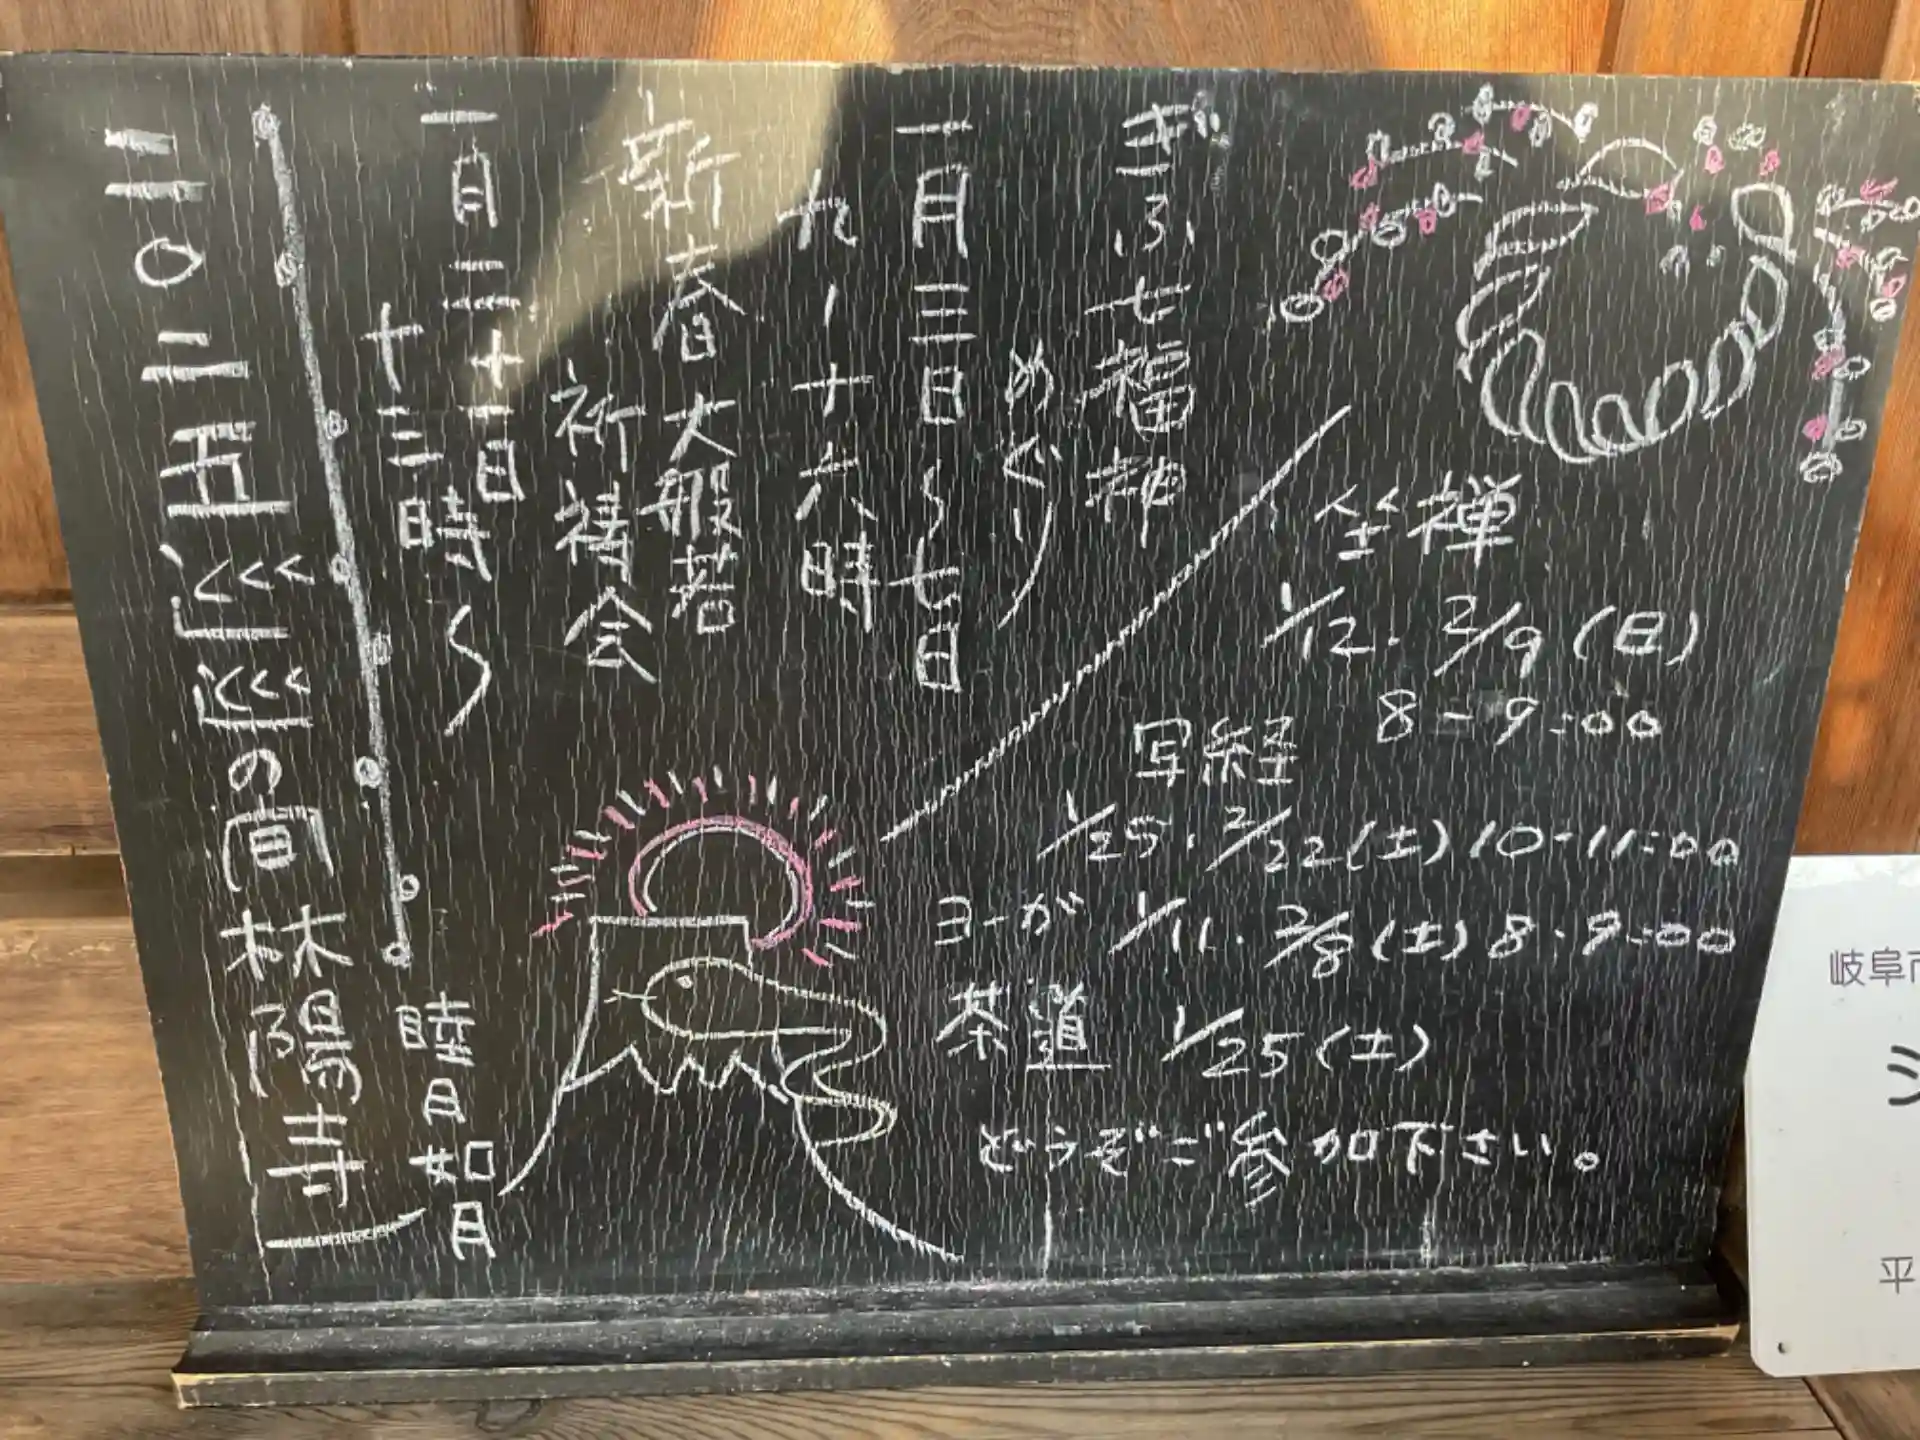 ぎふ七福神
めぐり
一月三日〜七日
九ー十六時
新春大般若
祈祷会
一月二十一日
十三時〜
坐禅
1/12・2/9(日)
8-9:00
写経
1/25・2/22(土)10-11:00
ヨーガ 1/11・2/8(土)8-9:00
茶道 1/25(土)
どうぞご参加下さい。
二〇二五巡巡の間林陽寺
睦月如月
岐阜
平